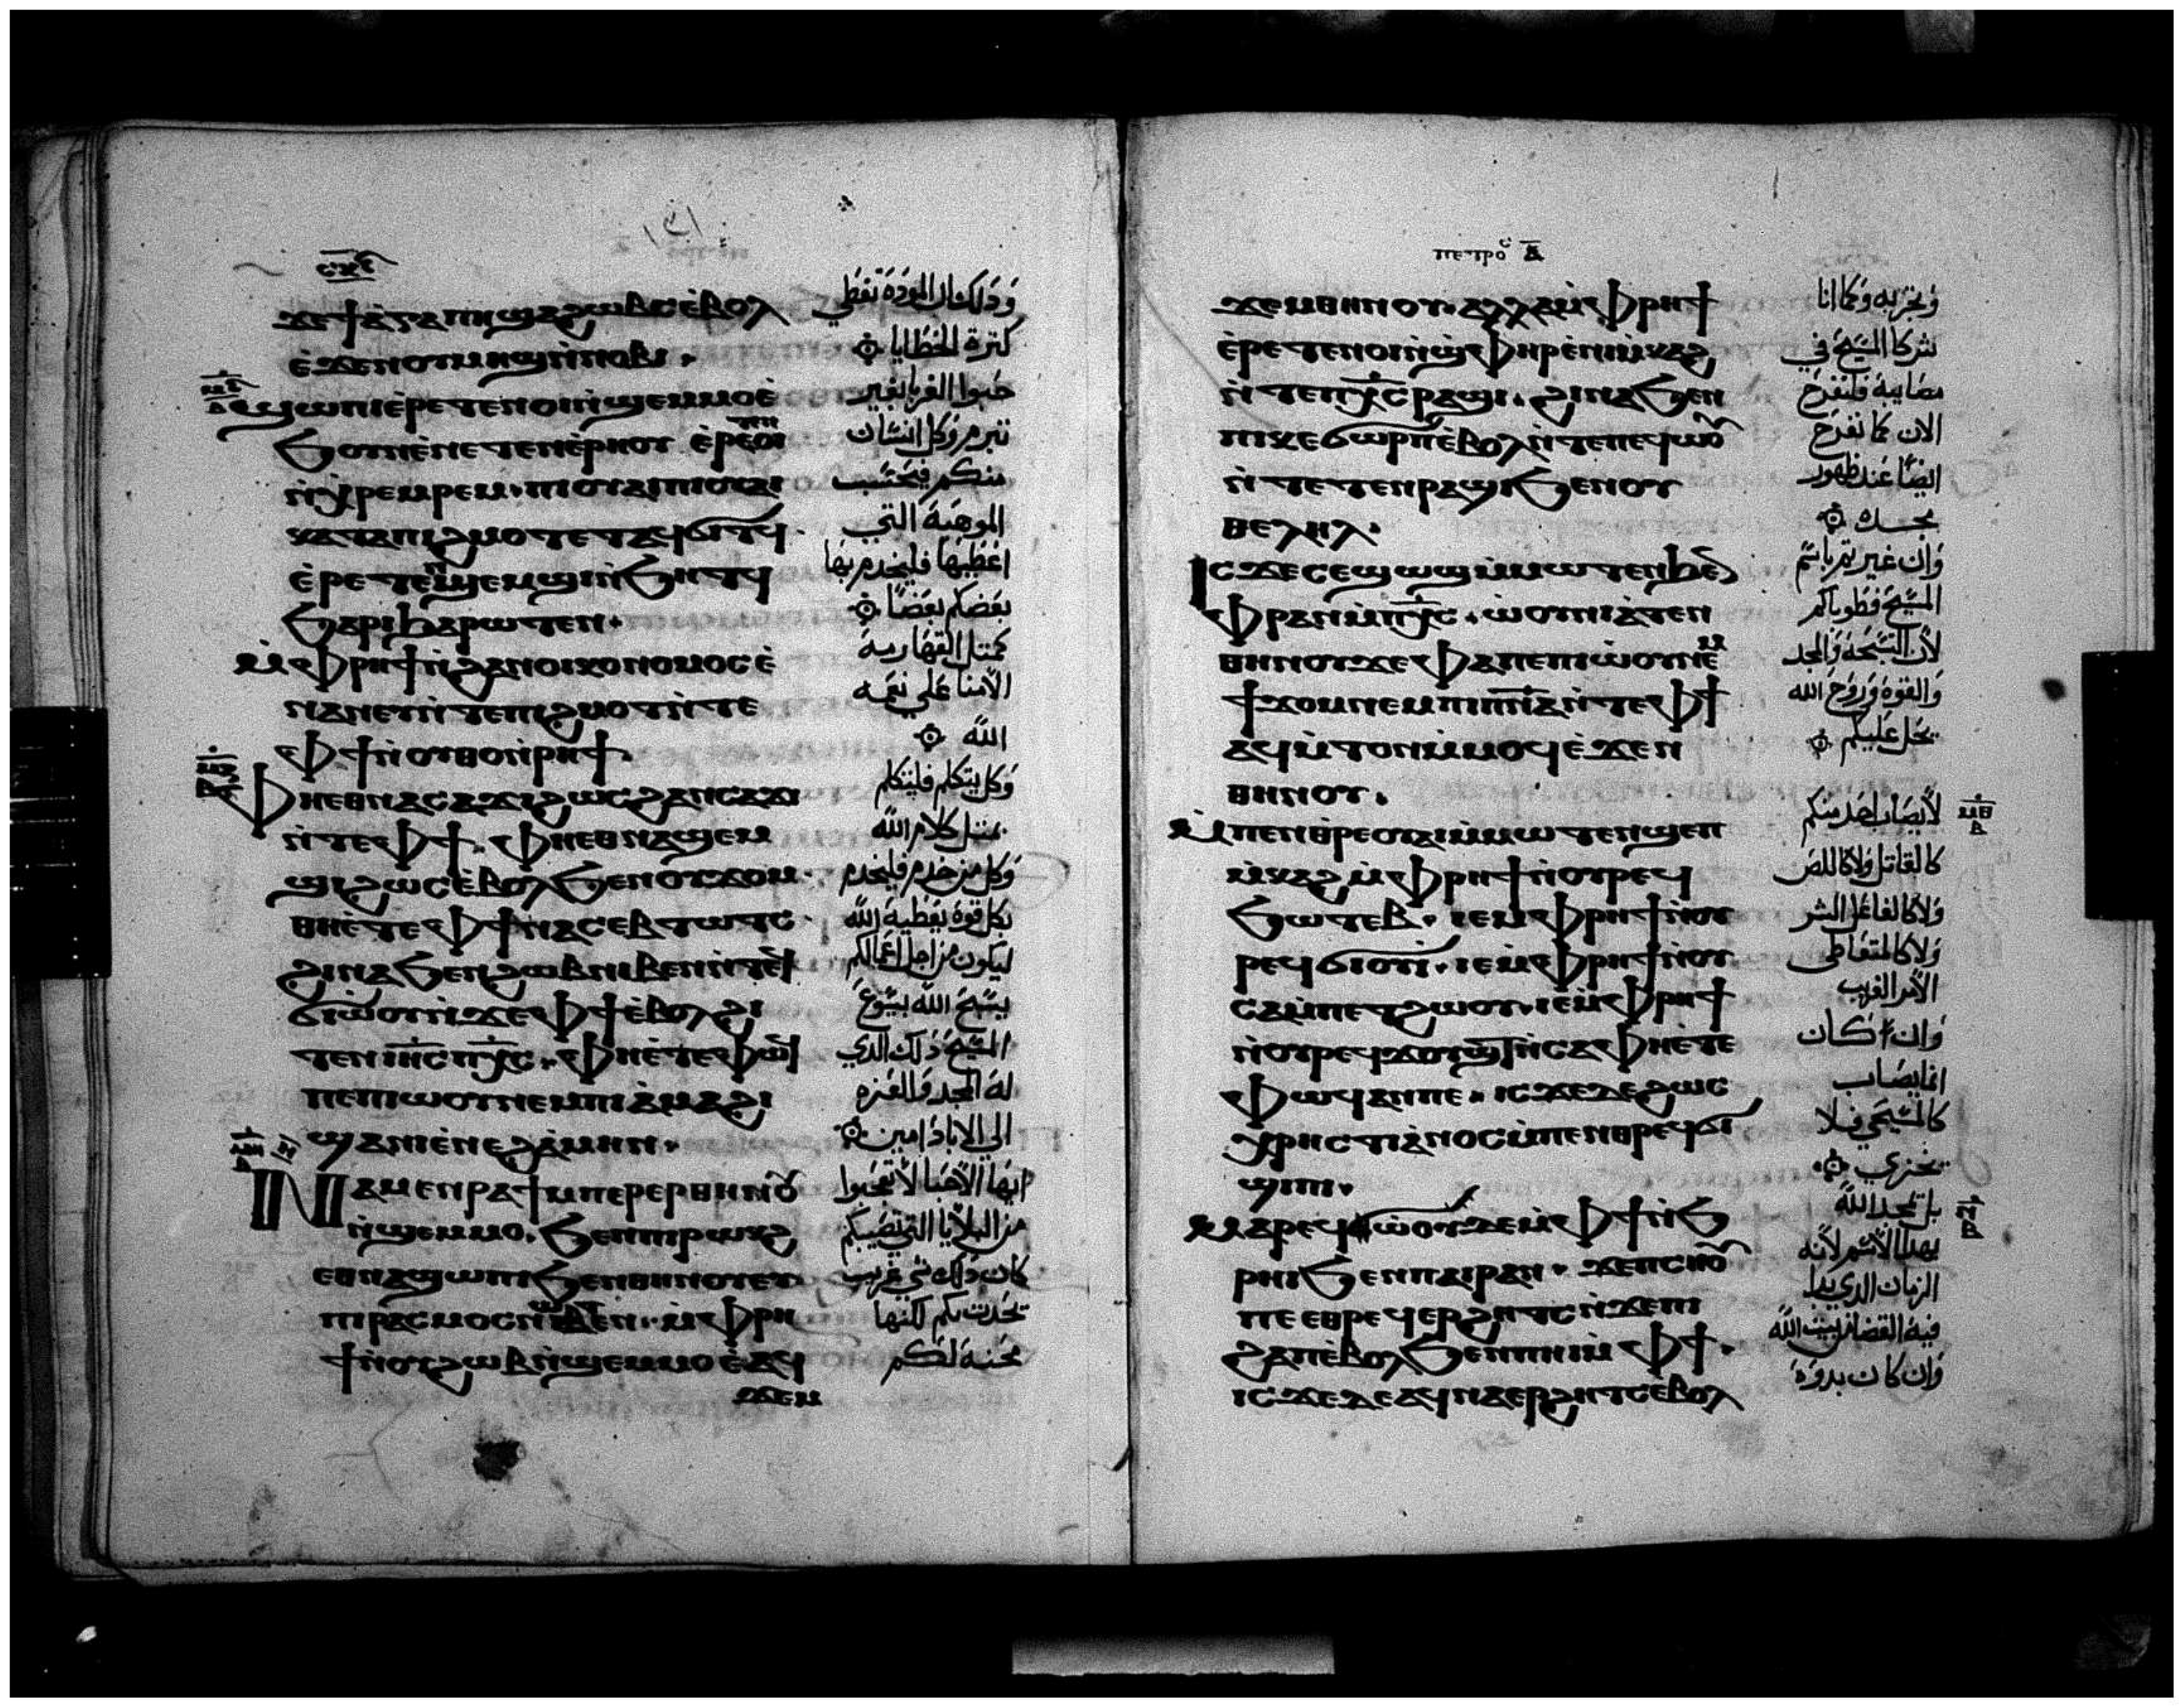 ⲥⲕⲋ
ϫⲉ ϯⲁⲅⲁⲡⲏ ϣⲁϩⲱⲃⲥ ⲉ̀ⲃⲟⲗ
ⲉ̀ϫⲉⲛ ⲟⲩⲙⲏϣ ⲛ̀ⲛⲟⲃⲓ.
ϣⲱⲡⲓ ⲉ̀ⲣⲉⲧⲉⲛⲟⲓ ⲛ̀ϣⲉⲙⲙⲟ ⲉ̀
ϧⲟⲩⲛ ⲉ̀ⲛⲉⲧⲉⲛⲉ̀ⲣⲏⲟⲩ
ⲛ̀ⲭⲣⲉⲙⲣⲉⲙ. ⲡⲓⲟⲩⲁⲓ ⲡⲓⲟⲩⲁⲓ
ⲕⲁⲧⲁ ⲡⲓϩⲙⲟⲧ ⲉⲧⲁϥϭⲓⲧϥ.
ⲉ̀ⲣⲉⲧⲉⲛϣⲉⲙϣⲓ ⲛ̀ϧⲏⲧϥ
ϧⲁⲣⲓϧⲁⲣⲱⲧⲉⲛ.
ⲙ̀ⲫⲣⲏϯ ⲛ̀ϩⲁⲛⲟⲓⲕⲟⲛⲟⲙⲟⲥ ⲉ̀
ⲛⲁⲛⲉⲩ ⲛ̀ⲧⲉ ⲡⲓϩⲙⲟⲧ ⲛ̀ⲧⲉ
ⲫϯ ⲛ̀ⲟⲩⲑⲟ ⲛ̀ⲣⲏϯ.
ⲫⲏⲉⲑⲛⲁⲥⲁϫⲓ ϩⲱⲥ ϩⲁⲛⲥⲁϫⲓ
ⲛ̀ⲧⲉ ⲫϯ. ⲫⲏⲉⲑⲛⲁϣⲉⲙ
ϣⲓ ϩⲱⲥ ⲉ̀ⲃⲟⲗ ϧⲉⲛ ⲟⲩϫⲟⲙ.
ⲑⲏⲉ̀ⲧⲉ ⲫϯ ⲛⲁⲥⲉⲃⲧⲱⲧⲥ.
ϩⲓⲛⲁ ϧⲉⲛ ϩⲱⲃ ⲛⲓⲃⲉⲛ ⲛ̀ⲧⲉϥ
ϭⲓⲱ̀ⲟⲩ ⲛ̀ϫⲉ ⲫϯ ⲉ̀ⲃⲟⲗ ϩⲓ
ⲧⲉⲛ ⲓⲏⲥ ⲡⲭⲥ. ⲫⲏⲉ̀ⲧⲉ ⲫⲱϥ
ⲡⲉ ⲡⲓⲱⲟⲩ ⲛⲉⲙ ⲡⲓⲁ̀ⲙⲁϩⲓ
ϣⲁ ⲛⲓⲉ̀ⲛⲉϩ ⲁ̀ⲙⲏⲛ.
ⲛⲁⲙⲉⲛⲣⲁϯ ⲙⲡⲉⲣⲉⲣⲑⲏⲛⲟⲩ
ⲛ̀ϣⲉⲙⲙⲟ. ϧⲉⲛ ⲡⲓⲣⲱⲕϩ
ⲉⲑⲛⲁϣⲱⲡⲓ ϧⲉⲛ ⲑⲏⲛⲟⲩ ⲉⲩ
ⲡⲓⲣⲁⲥⲙⲟⲥ ⲙ̀ⲫⲣⲏ
ϯ ⲛ̀ⲟⲩϩⲱⲃ ⲛ̀ϣⲉⲙⲙⲟ ⲉ̀ⲁϥ
ϫⲉⲙ
وذلك ان المودة تغطي
كثرة الخطايا
حبوا الغربا بغير
تبرم وكل انسان
منكم فبحسب
الموهبة التي
اعطيها فليخدم بها
بعضكم بعضا
كمثل القهارمة
الامنا علي نعمه
الله
وكل يتكلم فليتكلم
بمثل كلام الله
وكل من خدم فليخدم
بكل قوة يعطيه الله
ليكون من اجل اعمالكم
يسبح الله بيسوع
المسيح ذلك الدي
له المجد والعزه
الي الاباد امين
ايها الاحبا لا تعجبوا
من البلايا التي تصيبكم
كان ذلك شي غريب
تحدث بكم لكنها
محنة لكم
ⲡⲉⲧⲣⲟⲥ ⲁ
ϫⲉⲙ ⲑⲏⲛⲟⲩ. ⲁⲗⲗⲁ ⲙ̀ⲫⲣⲏϯ
ⲉ̀ⲣⲉⲧⲉⲛⲟⲓ ⲛ̀ϣⲫⲏⲣ ⲉ̀ⲛⲓⲙ̀ⲕⲁⲩϩ
ⲛ̀ⲧⲉ ⲡⲭⲥ ⲣⲁϣⲓ. ϩⲓⲛⲁ ϧⲉⲛ
ⲡⲓⲕⲉϭⲱⲣⲡ ⲉ̀ⲃⲟⲗ ⲛ̀ⲧⲉ ⲡⲉϥⲱⲟⲩ
ⲛ̀ⲧⲉⲧⲉⲛⲣⲁϣⲓ ϧⲉⲛ ⲟⲩ
ⲑⲉⲗⲏⲗ.
ⲓⲥϫⲉ ⲥⲉϣⲱϣ ⲙ̀ⲙⲱⲧⲉⲛ ϧⲉⲛ
ⲫⲣⲁⲛ ⲙ̀ⲡⲭⲥ. ⲱ̀ⲟⲩⲛⲓⲁ̀ⲧⲉⲛ
ⲑⲏⲛⲟⲩ ϫⲉ ⲫⲁ ⲡⲉⲡⲓⲱ̀ⲟⲩ ⲛⲉⲙ
ϯϫⲟⲙ ⲛⲉⲙ ⲡⲓⲡⲛⲁ ⲛ̀ⲧⲉ ⲫϯ
ⲁϥⲙ̀ⲧⲟⲛ ⲙ̀ⲙⲟϥ ⲉ̀ϫⲉⲛ
ⲑⲏⲛⲟⲩ.
ⲙ̀ⲡⲉⲛⲑⲣⲉ ⲟⲩⲁⲓ ⲙ̀ⲙⲱⲧⲉⲛ ϣⲉⲡ
ⲙ̀ⲕⲁϩ ⲙ̀ⲫⲣⲏϯ ⲛ̀ⲟⲩⲣⲉϥ
ϧⲱⲧⲉⲃ. ⲓⲉ ⲙ̀ⲫⲣⲏϯ ⲛ̀ⲟⲩ
ⲣⲉϥϭⲓⲟⲩⲓ̀. ⲓⲉ ⲙ̀ⲫⲣⲏϯ ⲛ̀ⲟⲩ
ⲥⲁⲙ̀ⲡⲉⲧϩⲱⲟⲩ. ⲓⲉ ⲙ̀ⲫⲣⲏϯ
ⲛ̀ⲟⲩⲣⲉϥϫⲟⲩϣⲧ ⲛ̀ⲥⲁ ⲫⲏⲉ̀ⲧⲉ
ⲫⲱϥ ⲁⲛ ⲡⲉ. ⲓⲥϫⲉ ⲇⲉ ϩⲱⲥ
ⲭⲣⲏⲥⲧⲓⲁ̀ⲛⲟⲥ ⲙ̀ⲡⲉⲛⲑⲣⲉϥϭⲓ
ϣⲓⲡⲓ.
ⲙⲁⲣⲉϥϯⲱ̀ⲟⲩ ⲇⲉ ⲙ̀ⲫϯ ⲛ̀ϧ
ⲣⲏⲓ ϧⲉⲛ ⲡⲁⲓⲣⲁⲛ. ϫⲉ ⲡⲥⲏⲟⲩ
ⲡⲉ ⲉⲑⲣⲉϥⲉⲣϩⲏⲧⲥ ⲛ̀ϫⲉ ⲡⲓ
ϩⲁⲡ ⲉ̀ⲃⲟⲗ ϧⲉⲛ ⲡⲏⲓ ⲙ̀ⲫϯ.
ⲓⲥϫⲉ ⲇⲉ ⲁϥⲛⲁⲉⲣϩⲏⲧⲥ ⲉ̀ⲃⲟⲗ
وتجربه وكما انا
شركا المسيح في
مصايبه فلنفرح
الان كما نفرح
ايضا عند ظهور
مجده
وان غيرتم باسم
المسيح فطوباكم
لان السبحة والمجد
والقوة وروح الله
يحل عليكم
لا يصاب احد منكم
كالقاتل ولا كاللص
ولا كالفاعل الشر
ولا كالمتعاطي
الامر الغريب
وان كان
انما يصاب
كالمسيحي فلا
يخزي
بل يمجد الله
بهدا الاسم لانه
الزمان الدي يبدا
فيه القضا من بيت الله
وان كان بدوه